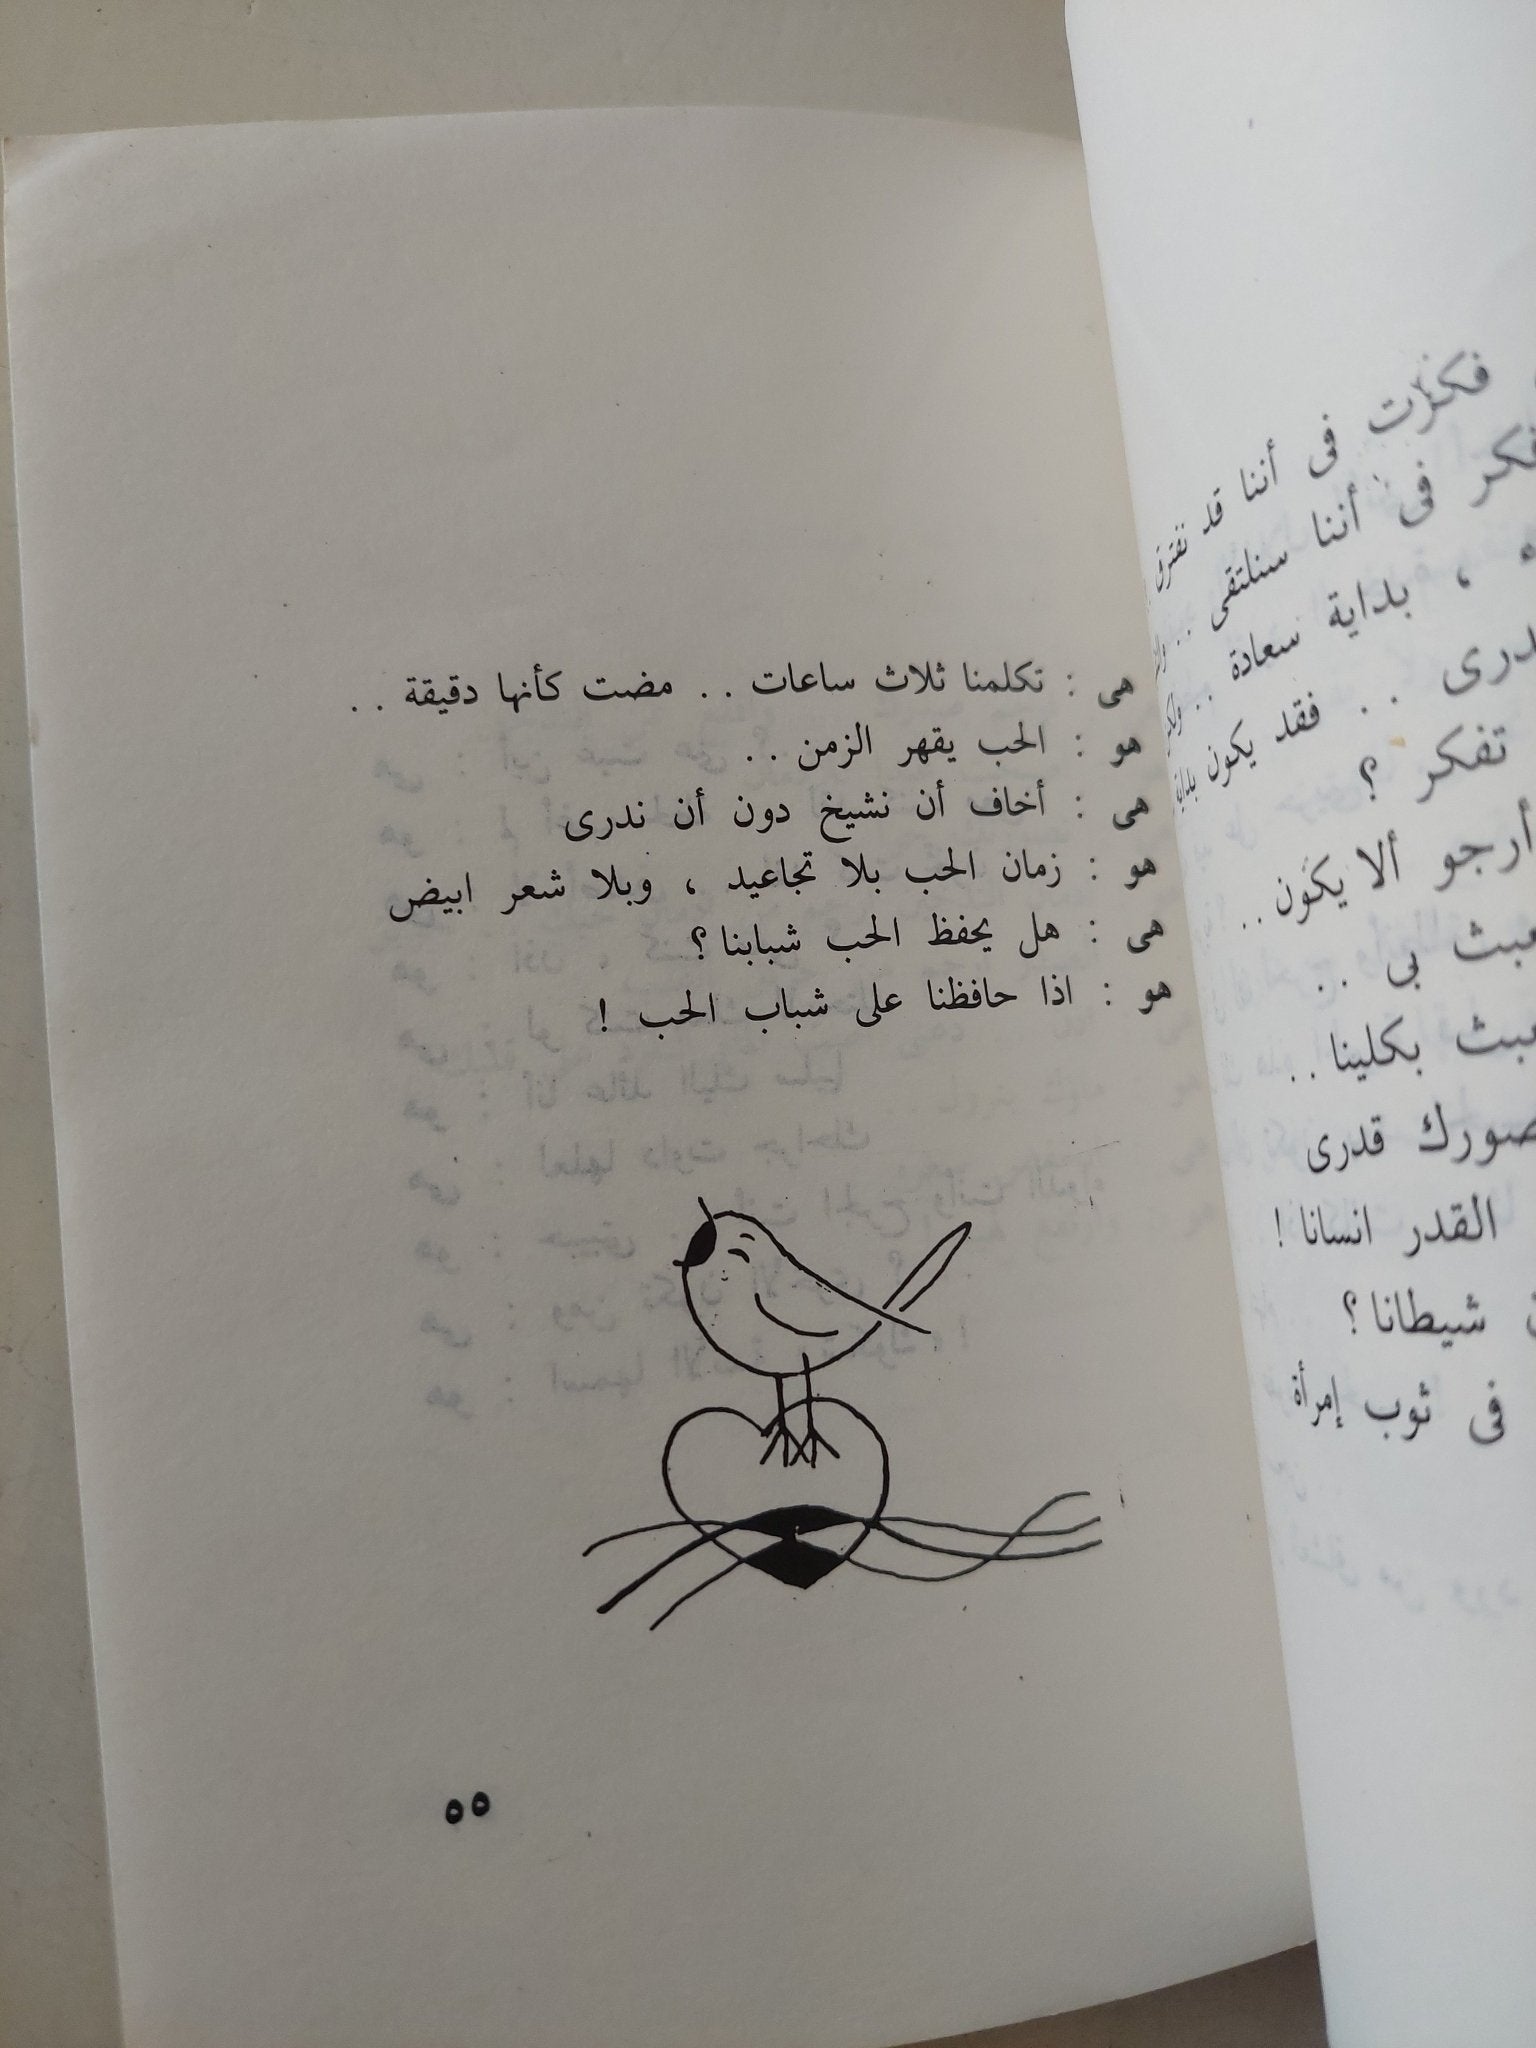 هى : تكلمنا ثلاث ساعات . . مضت كأنها دقيقة . .
هو : الحب يقهر الزمن . .
هى : أخاف أن نشيخ دون أن ندرى
هو : زمان الحب بلا تجاعيد ، وبلا شعر ابيض
هى : هل يحفظ الحب شبابنا ؟
هو : اذا حافظنا على شباب الحب !
٥٥
فكرت فى أننا قد نفترق
فكر فى أننا سنلتقى . .
، بداية سعادة . .
. . فقد يكون بداية
تفكر ؟
أرجو ألا يكون . .
بى . .
بكلينا . .
قدرى
القدر انسانا !
شيطانا ؟
فى ثوب إمرأة